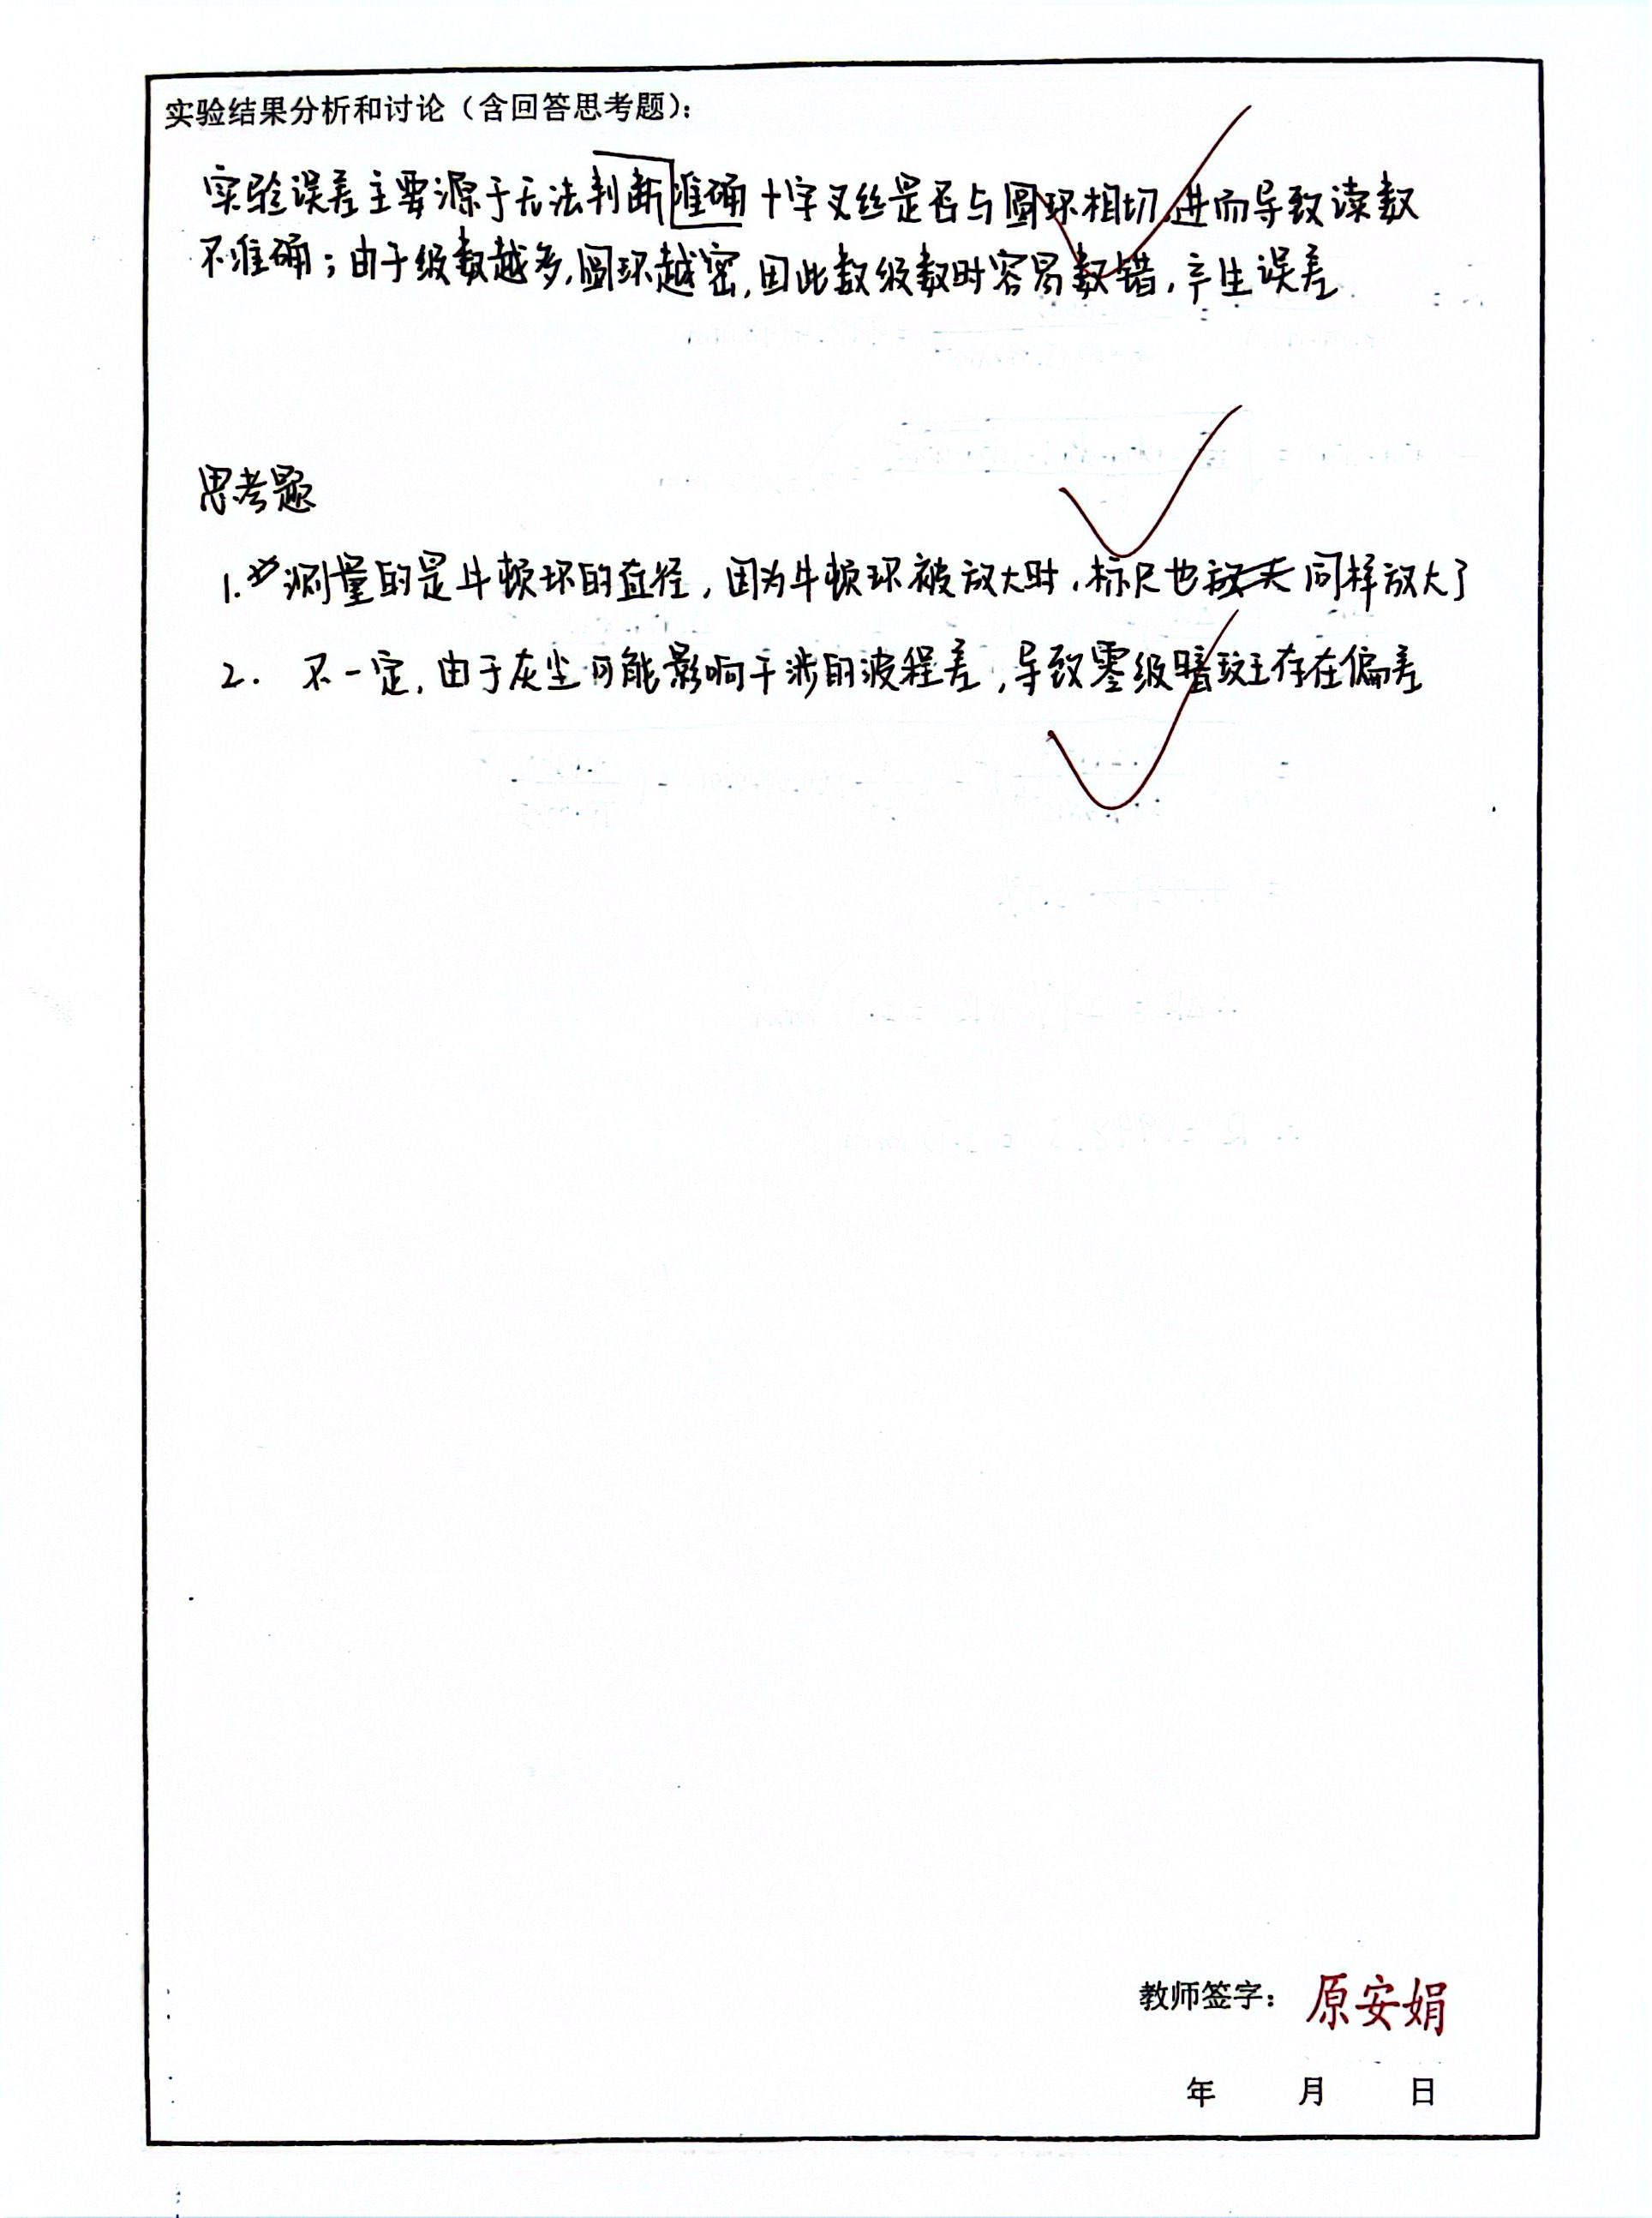 实验结果分析和讨论（含回答思考题）：
实验误差主要源于无法判断准确十字叉丝是否与圆环相切，进而导致读数
不准确；由于级数越多，圆环越密，因此数级数时容易数错，产生误差
思考题
1. 测量的是牛顿环的直径，因为牛顿环被放大时，标尺也放大同样放大了
2. 不一定，由于灰尘可能影响干涉的波程差，导致零级暗纹存在偏差
教师签字：原安娟
年 月 日